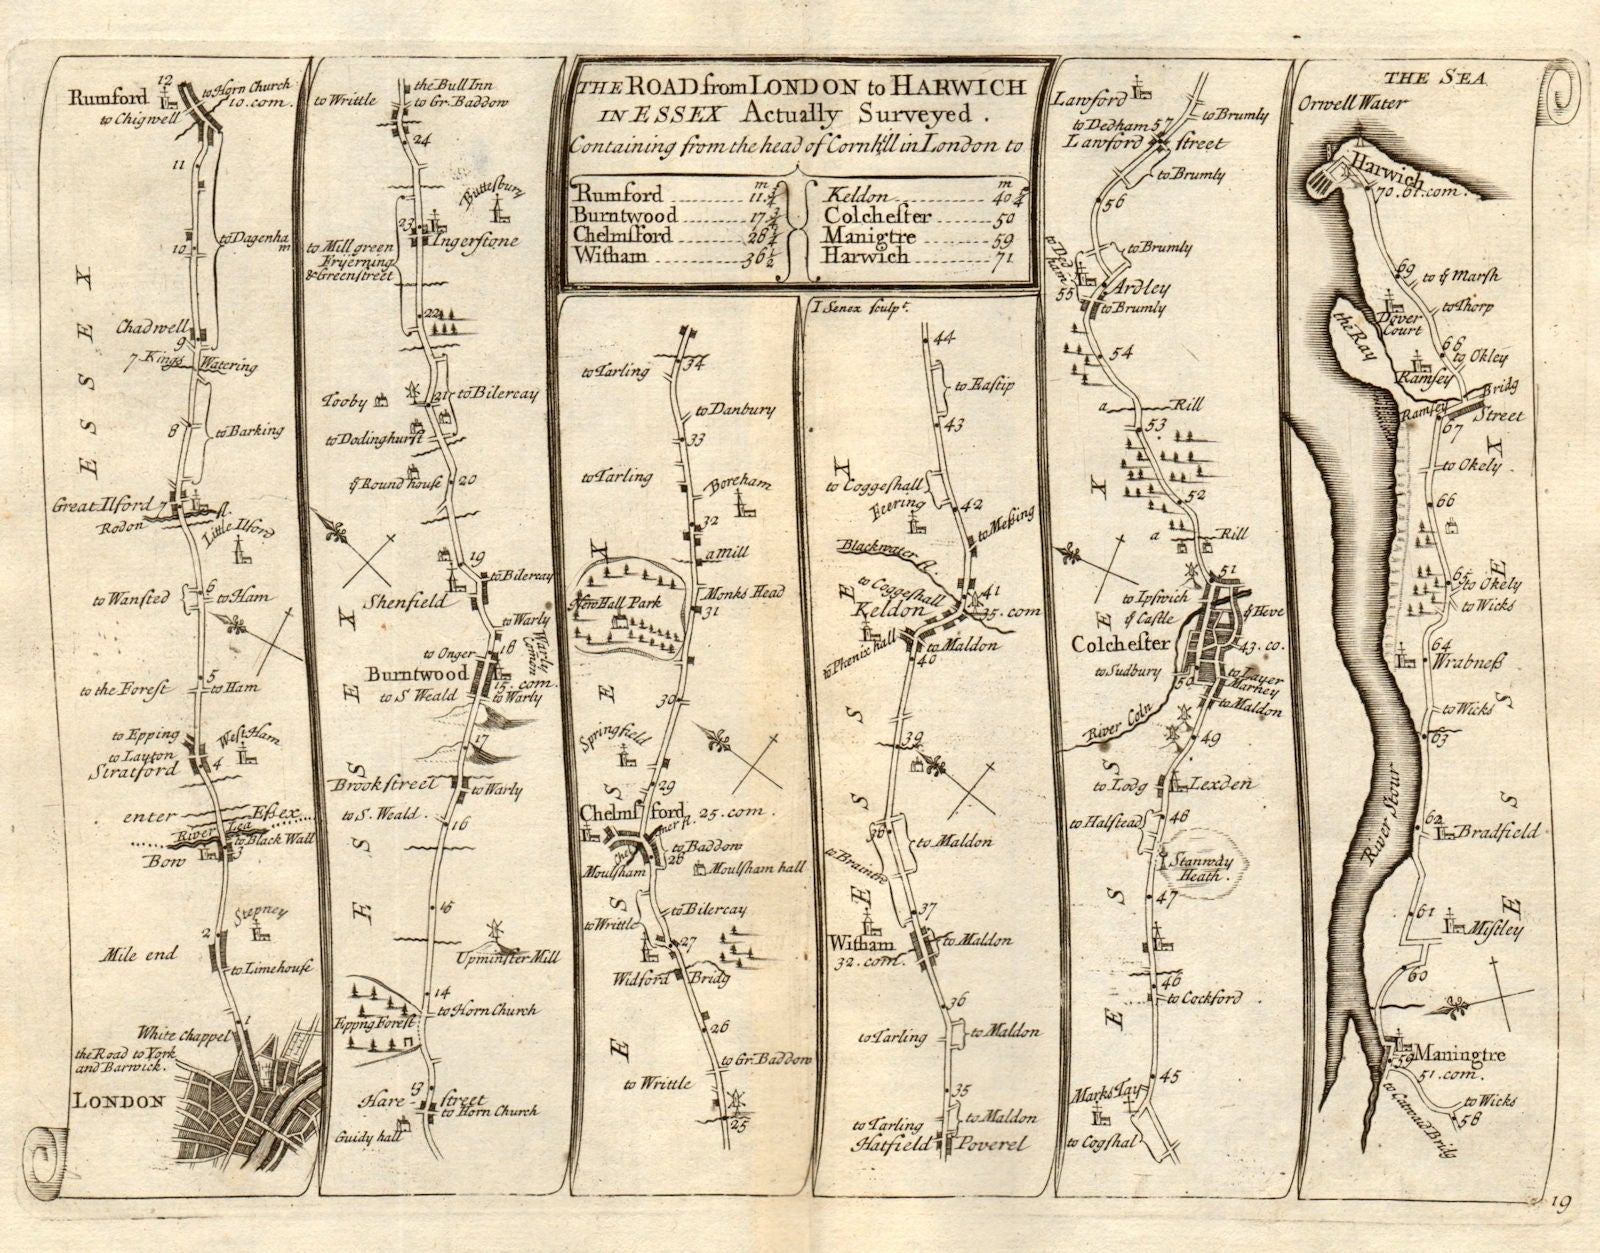 THE ROAD from LONDON to HARWICH
IN ESSEX Actually Surveyed.
Containing from the head of Cornhill in London to
m
Rumford 11 3/4
Burntwood 17 3/4
Chelmsford 28 3/4
Witham 36 1/2
m
Keldon 40 3/4
Colchester 50
Manigtre 59
Harwich 71
12
Rumford
to Horn Church
10.com.
to Chigwell
11
10
to Dagenham
ESSEX
Chadwell
9
7 Kings Watering
8
to Barking
Great Ilford 7
Rodon fl.
Little Ilford
to Wansted
6
to Ham
5
to the Forest
to Ham
to Epping
to Layton
Stratford
4
West Ham
enter Essex
River Lea
to Black Wall
Bow
3
Stepney
2
Mile end
to Limehouse
1
White chappel
the Road to York
and Barwick.
LONDON
the Bull Inn
to Writtle
to Gr. Baddow
24
Buttesbury
23
Ingerstone
to Mill green
Fryerning
& Greenstreet
22
Tooby
21
to Bilercay
to Dodinghurst
ye Round house
20
19
to Bilercay
Shenfield
to Warly
Warly Comon
18
to Onger
Burntwood
15.com.
to S Weald
to Warly
17
Brook street
to Warly
to S. Weald.
16
ESSEX
15
Upminster Mill
14
to Horn Church
Epping Forest
13
Hare street
to Horn Church
Guidy hall
34
to Tarling
to Danbury
33
to Tarling
Boreham
32
a Mill
New Hall Park
Monks Head
31
30
Springfield
29
Chelmsford
25.com.
Chelmer R.
to Baddow
28
Moulsham
Moulsham hall
to Bilercay
to Writtle
27
Widford Bridg
26
ESSEX
to Gr. Baddow
to Writtle
25
I Senex sculpt.
44
to Eastip
43
to Coggeshall
Feering
42
to Messing
Blackwater R.
to Coggeshall
41
Keldon
35.com
to Maldon
to Phenix hall
40
39
38
to Maldon
to Braintre
37
Witham
to Maldon
32.com.
36
ESSEX
to Tarling
to Maldon
35
to Maldon
to Tarling
Hatfield Poverel
Lawford
to Brumly
to Dedham 57
Lawford street
to Brumly
56
to Dedham
to Brumly
55
Ardley
to Brumly
54
a Rill
53
52
a Rill
51
to Ipswich
ye Castle
ye Heve
Colchester
43.co.
to Sudbury
50
to Layer Marney
to Maldon
River Coln
49
to Lodg
Lexden
to Halstead
48
Stanway
Heath.
47
46
to Cockford
ESSEX
45
Marks Tay
to Cogshal
THE SEA
Orwell Water
Harwich
70.61.com.
69
to ye Marsh
to Thorp
Dover
Court
the Ray
68
to Okley
Ramsey
Ramsey Bridg
Street
67
to Okely
66
65
to Okely
to Wicks
64
Wrabness
to Wicks
63
River Stour
62
Bradfield
61
Mistley
60
ESSEX
59
Maningtre
51.com.
to Wicks
58
19